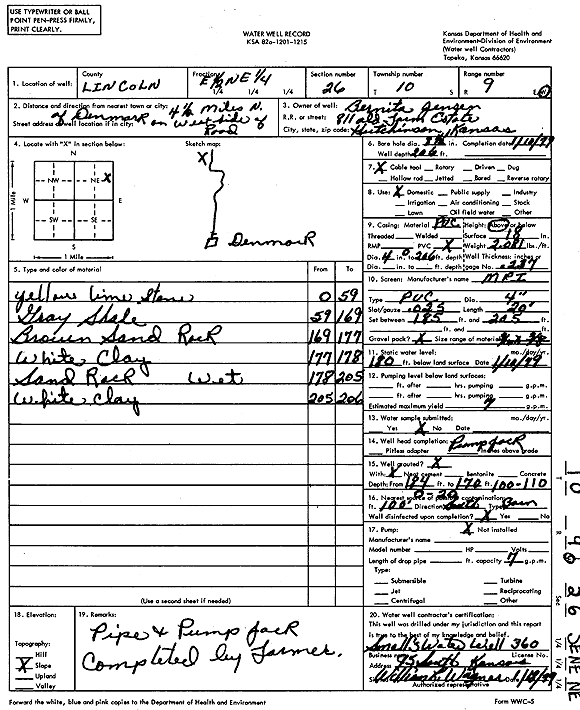 USE TYPEWRITER OR BALL
POINT PEN-PRESS FIRMLY,
PRINT CLEARLY.
WATER WELL RECORD
KSA 82a-1201-1215
Kansas Department of Health and
Environment-Division of Environment
(Water well Contractors)
Topeka, Kansas 66620
1. Location of well:
County
LINCOLN
Fraction
E½NE¼
1/4 1/4 1/4
Section number
26
Township number
T 10 S
Range number
R 9 E/W
2. Distance and direction from nearest town or city: 4½ Miles N.
of Denmark on West side of
Street address of well location if in city: Road
3. Owner of well: Bernita Jensen
R.R. or street: 811 a
City, state, zip code: Hutchinson, Kansas
4. Locate with "X" in section below:
N
NW NE X
W E
SW SE
S
1 Mile
1 Mile
Sketch map:
X
Denmark
6. Bore hole dia. in. Completion date 1/10/79
Well depth 206 ft.
7. X Cable tool Rotary Driven Dug
Hollow rod Jetted Bored Reverse rotary
8. Use: X Domestic Public supply Industry
Irrigation Air conditioning Stock
Lawn Oil field water Other
9. Casing: Material PVC Height: Above or below
Threaded Welded Surface 18 in.
RMP PVC X Weight 2.081 lbs./ft.
Dia. 4 in. to 206 ft. depth Wall Thickness: inches or
Dia. in. to ft. depth gage No. .237
5. Type and color of material From To
yellow lime stone 0 59
Gray Shale 59 169
Brown Sand Rock 169 177
White Clay 177 178
Sand Rock Wet 178 205
White Clay 205 206
(Use a second sheet if needed)
10. Screen: Manufacturer's name MPI
Type PVC Dia. 4"
Slot/gauze .025 Length 20'
Set between 185 ft. and 205 ft.
ft. and ft.
Gravel pack? X Size range of material
11. Static water level: mo./day/yr.
180 ft. below land surface Date 1/10/79
12. Pumping level below land surfaces:
ft. after hrs. pumping g.p.m.
ft. after hrs. pumping g.p.m.
Estimated maximum yield 7 g.p.m.
13. Water sample submitted: mo./day/yr.
Yes X No Date
14. Well head completion: Pump Jack
Pitless adapter Inches above grade
15. Well grouted? X
With: X Neat cement Bentonite Concrete
Depth: From 184 ft. to 170 ft. 100-110
0-20
16. Nearest source of possible contamination:
ft. 100' Direction South Type Barn
Well disinfected upon completion? X Yes No
17. Pump: X Not installed
Manufacturer's name
Model number HP Volts
Length of drop pipe ft. capacity 7 g.p.m.
Type:
Submersible Turbine
Jet Reciprocating
Centrifugal Other
18. Elevation:
Topography:
Hill
X Slope
Upland
Valley
19. Remarks:
Pipe & Pump Jack
Completed by Farmer.
20. Water well contractor's certification:
This well was drilled under my jurisdiction and this report
is true to the best of my knowledge and belief.
Small's Water Well 360
Business name License No.
Address Kansas
Signed Date
Authorized representative
T 10
R 9
Sec 26
1/4 1/4 1/4 SE NE NE
Forward the white, blue and pink copies to the Department of Health and Environment
Form WWC-5